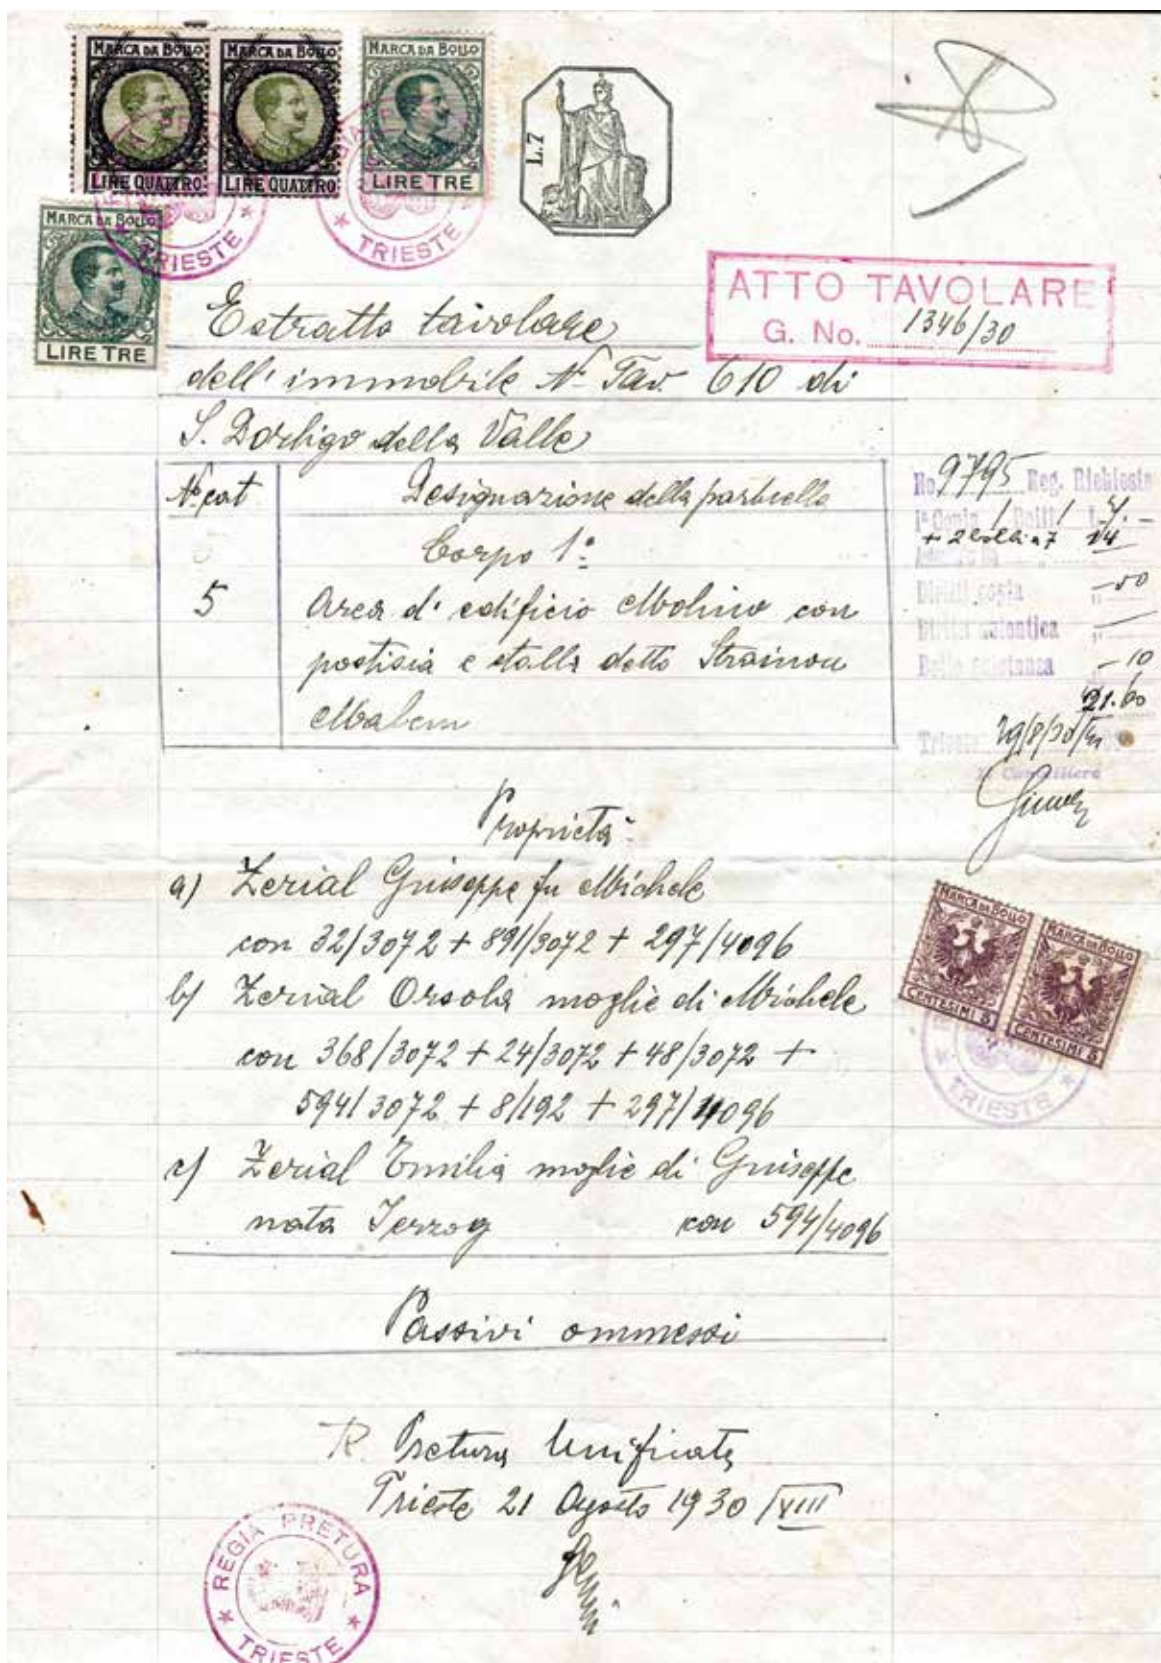 MARCA DA BOLLO
LIRE QUATTRO
MARCA DA BOLLO
LIRE QUATTRO
MARCA DA BOLLO
LIRE TRE
TRIESTE
TRIESTE
L.7
MARCA DA BOLLO
LIRE TRE
ATTO TAVOLARE
G. No. 1346/30
Estratto tavolare
dell' immobile N° Tav. 610 di
S. Dorligo della Valle
No 9795 Reg. Richieste
N° cat
Designazione della particella
Corpo 1°
+ 2 bolli a 7 14
5
Area d' edificio Molino con
Diritti copia " -50
postisia e stalla detto
Diritti autentica "
Bollo quietanza " -10
21.60
Trieste 29/8/30
Il Cancelliere
Proprietà
a) Zerial Giuseppe fu Michele
con 32/3072 + 891/3072 + 297/4096
b) Zerial Orsola moglie di Michele
con 368/3072 + 24/3072 + 48/3072 +
594/3072 + 8/192 + 297/4096
c) Zerial Emilia moglie di Giuseppe
nata Jerzog con 594/4096
MARCA DA BOLLO
CENTESIMI 5
MARCA DA BOLLO
CENTESIMI 5
TRIESTE
Passivi ommessi
R. Pretura Unificata
Trieste 21 Agosto 1930 VIII
REGIA PRETURA
TRIESTE